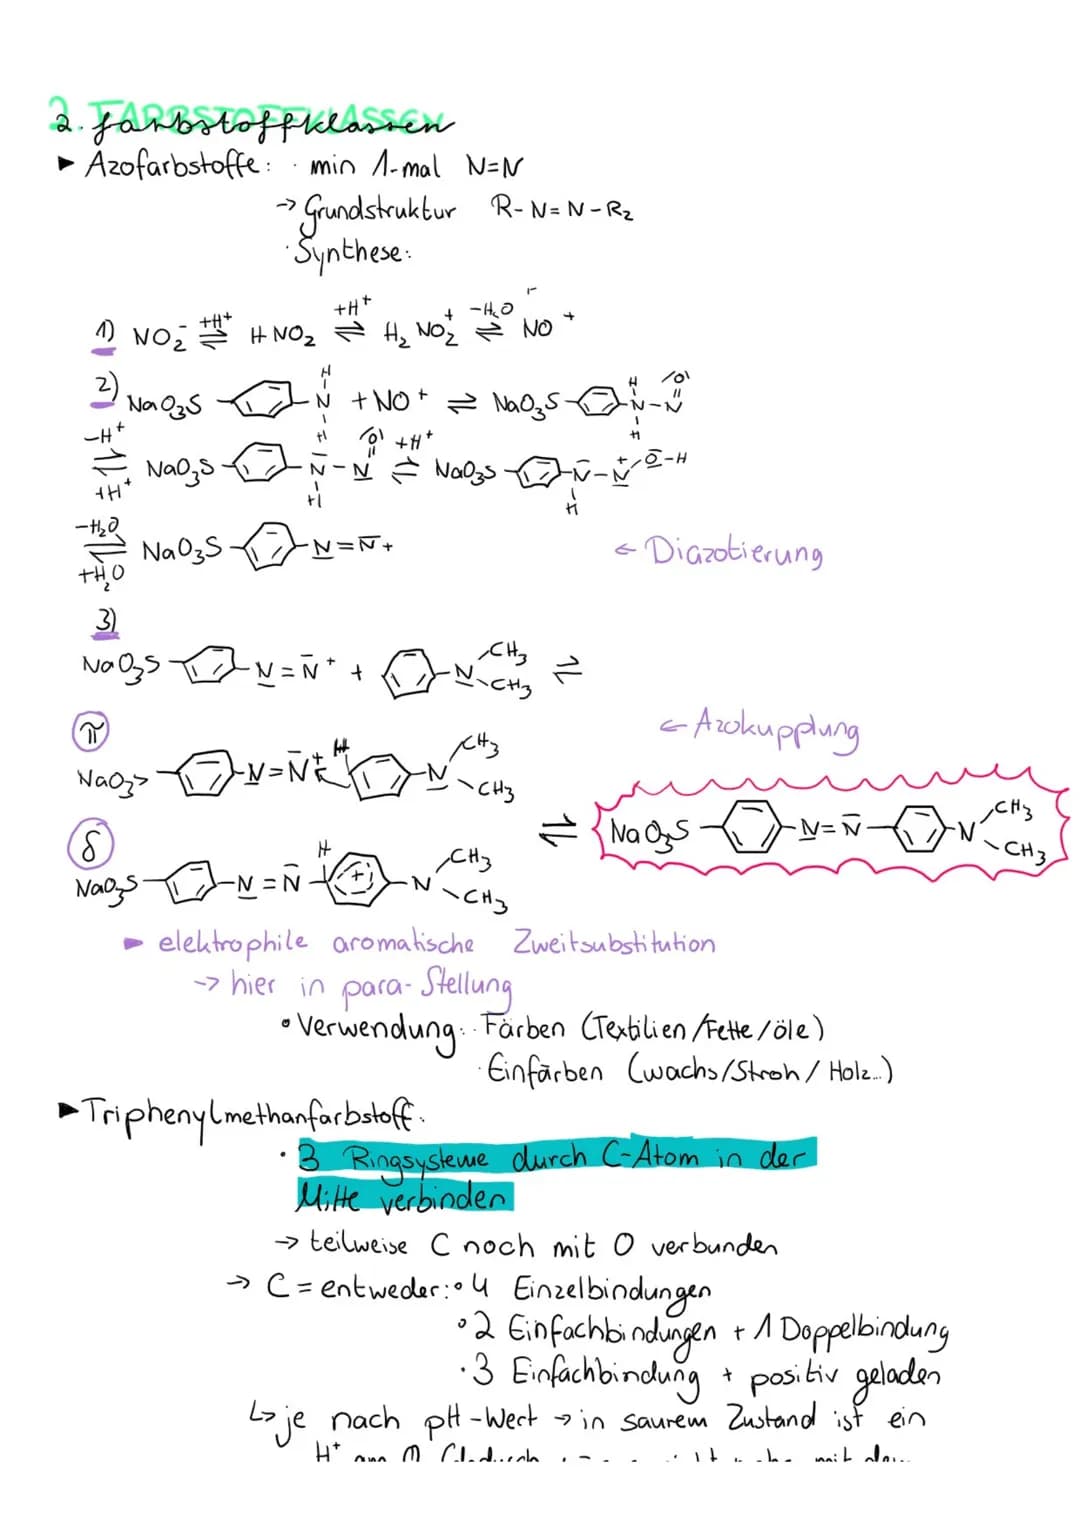 2. FARBSTOFFKLASSEN
2. farbstoffklassen
▶ Azofarbstoffe: · min 1-mal N=N
-> Grundstruktur R-N=N-R₂
· Synthese:
1) NO₂⁻ +H⁺ ⇌ HNO₂ +H⁺ ⇌ H₂NO₂⁺ -H₂O ⇌ NO⁺
2) NaO₃S H N H + NO⁺ ⇌ NaO₃S H N H - N O
-H⁺ ⇌ +H⁺ NaO₃S N H - N O +H⁺ ⇌ NaO₃S N H - N⁺ O-H
-H₂O ⇌ +H₂O NaO₃S N=N+
← Diazotierung
3)
NaO₃S N=N⁺ + N CH₃ CH₃ ⇌
π
← Azokupplung
NaO₃S N=N⁺ H N CH₃ CH₃
⇌ NaO₃S N=N N CH₃ CH₃
δ
NaO₃S N=N H (+) N CH₃ CH₃
▶ elektrophile aromatische Zweitsubstitution
-> hier in para-Stellung
• Verwendung: · Färben (Textilien/Fette/öle)
· Einfärben (wachs/Stroh/Holz...)
▶ Triphenylmethanfarbstoff:
· 3 Ringsysteme durch C-Atom in der
Mitte verbinden
-> teilweise C noch mit O verbunden
-> C = entweder: • 4 Einzelbindungen
• 2 Einfachbindungen + 1 Doppelbindung
· 3 Einfachbindung + positiv geladen
↳ je nach pH-Wert -> in saurem Zustand ist ein
H⁺ am O